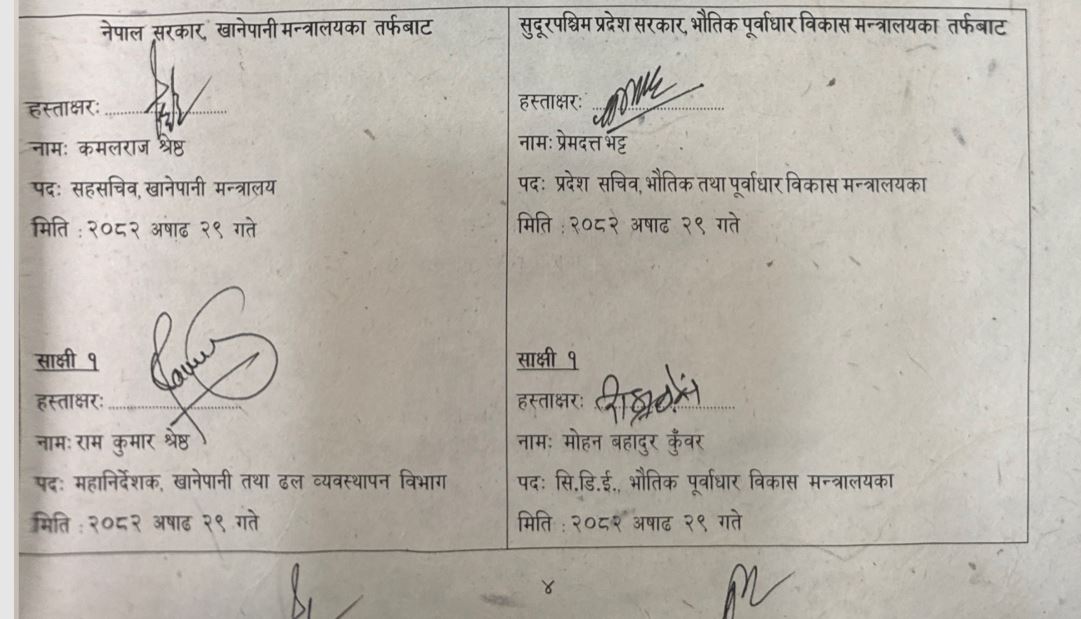 नेपाल सरकार, खानेपानी मन्त्रालयका तर्फबाट
हस्ताक्षरः
नामः कमलराज श्रेष्ठ
पदः सहसचिव, खानेपानी मन्त्रालय
मिति : २०८२ अषाढ २९ गते
साक्षी १
हस्ताक्षरः
नामः राम कुमार श्रेष्ठ
पदः महानिर्देशक, खानेपानी तथा ढल व्यवस्थापन विभाग
मिति : २०८२ अषाढ २९ गते
सुदूरपश्चिम प्रदेश सरकार, भौतिक पूर्वाधार विकास मन्त्रालयका तर्फबाट
हस्ताक्षरः
नामः प्रेमदत्त भट्ट
पदः प्रदेश सचिव, भौतिक तथा पूर्वाधार विकास मन्त्रालयका
मिति : २०८२ अषाढ २९ गते
साक्षी १
हस्ताक्षरः
नामः मोहन बहादुर कुँवर
पदः सि.डि.ई., भौतिक पूर्वाधार विकास मन्त्रालयका
मिति : २०८२ अषाढ २९ गते
४